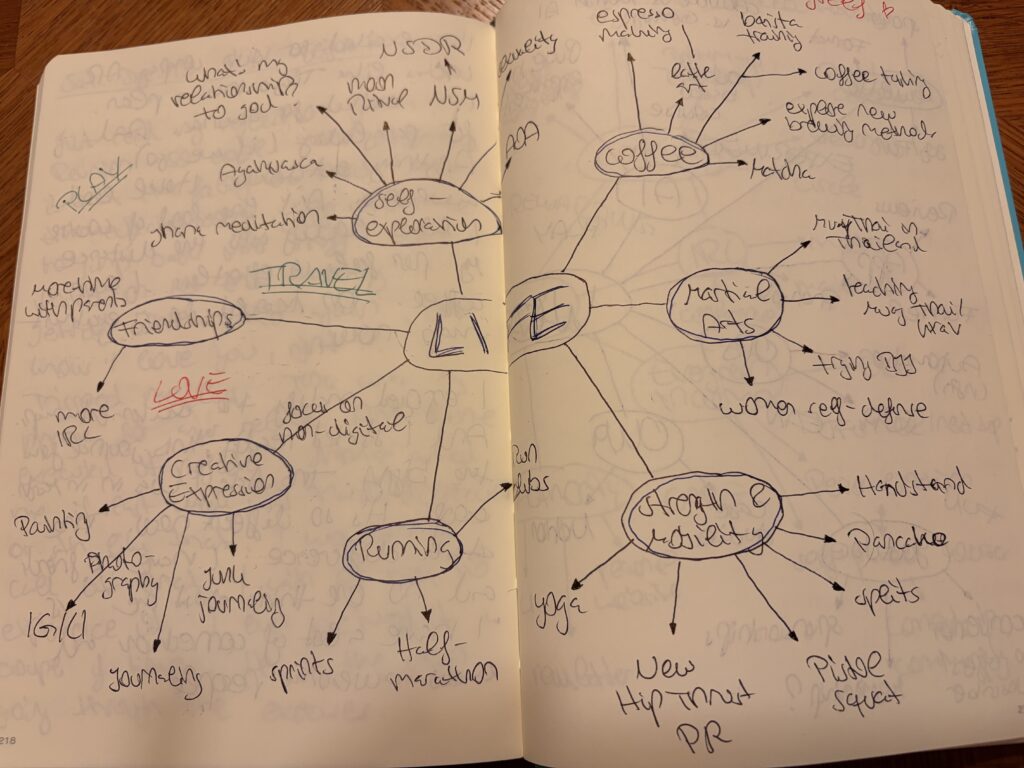 NSDR
What's my
relationship
to god
moon
ritual
NSM
Ayahuasca
jhana meditation
self-
exploration
PLAY
TRAVEL
more time
Friendships
more
IRL
LOVE
LI
focus on
non-digital
Creative
Expression
Painting
Photo-
graphy
IG/
junk
journaling
journaling
Running
sprints
Half-
marathon
218
espresso
making
barista
latte
art
coffee
explore new
brewing methods
Matcha
E
Martial
Arts
Muay Thai in
Thailand
teaching
trying BJJ
women self-defense
Run
clubs
Strength &
mobility
Handstand
Pancake
splits
yoga
New
Hip Thrust
PR
Pistol
Squat